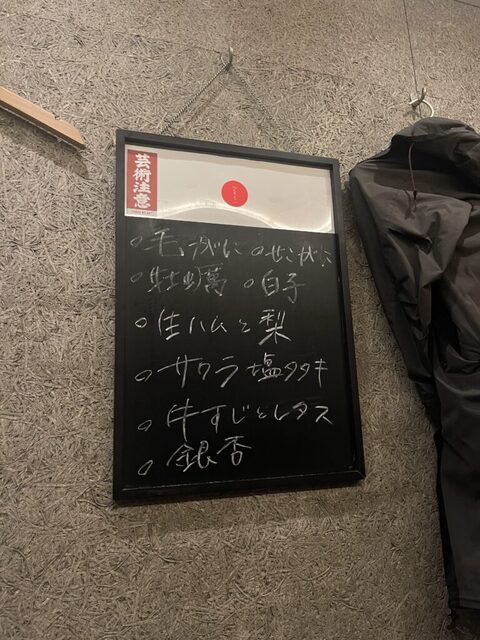 芸術注意
○毛がに ○せこがに
○牡蠣 ○白子
○生ハムと梨
○サワラ塩タタキ
○牛すじとレタス
○銀杏